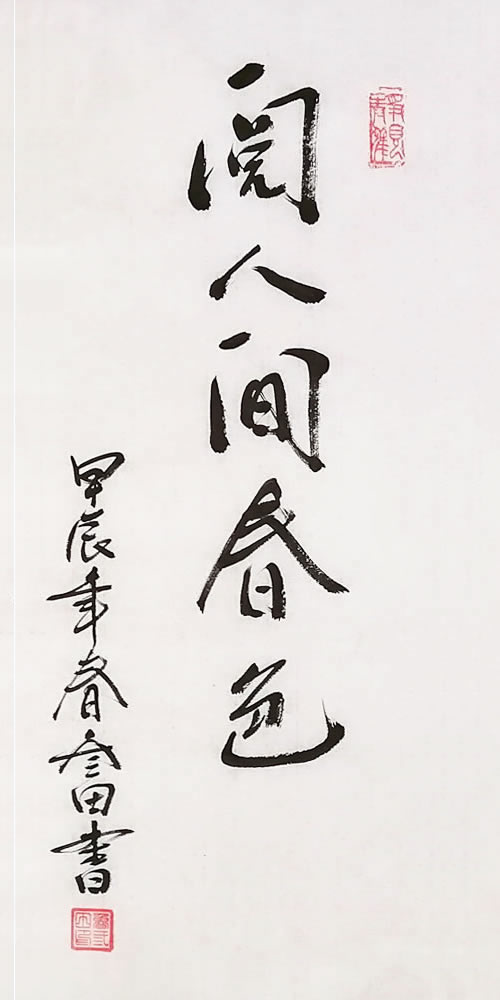 阅人间春色
甲辰年春 田書